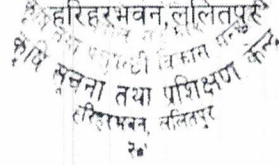 हरिहरभवन, ललितपुर
कृषि सूचना तथा प्रशिक्षण केन्द्र
हरिहरभवन, ललितपुर
२०